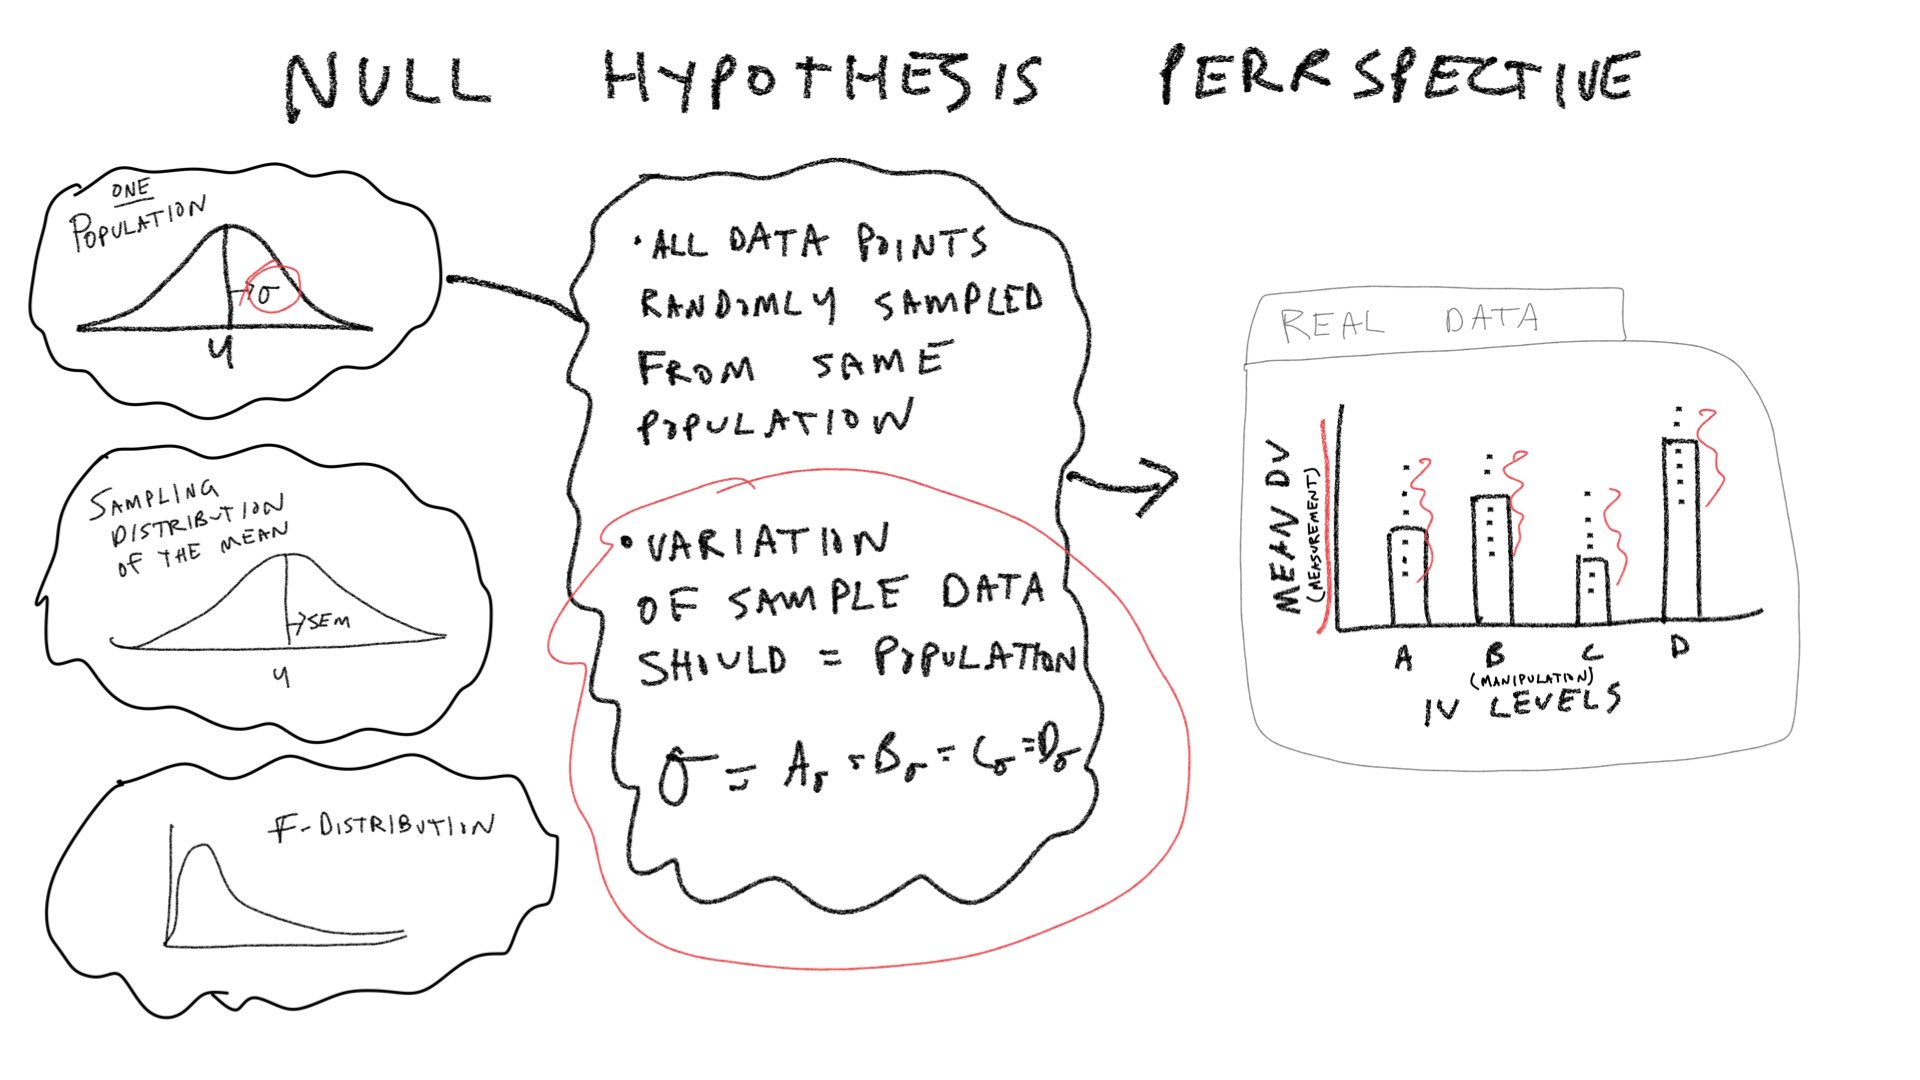 NULL HYPOTHESIS PERRSPECTIVE
ONE
POPULATION
σ
μ
SAMPLING
DISTRIBUTION
OF THE MEAN
SEM
μ
F-DISTRIBUTION
• ALL DATA POINTS
RANDOMLY SAMPLED
FROM SAME
POPULATION
• VARIATION
OF SAMPLE DATA
SHOULD = POPULATION
σ = Aσ = Bσ = Cσ = Dσ
REAL DATA
MEAN DV
(MEASUREMENT)
A B C D
(MANIPULATION)
IV LEVELS